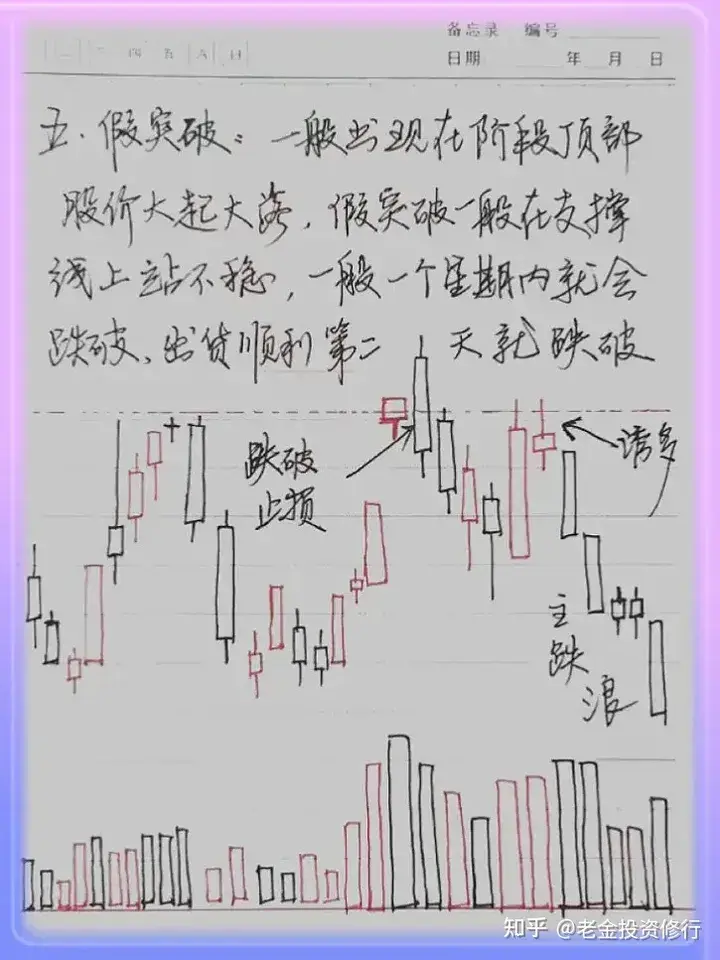 备忘录 编号
二 四 五 六 日
日期 年 月 日
五.假突破:一般出现在阶段顶部
股价大起大落,假突破一般在支撑
线上站不稳,一般一个星期内就会
跌破、出货顺利第二 天就跌破
跌破
止损
诱多
主
跌
浪
知乎 @老金投资修行